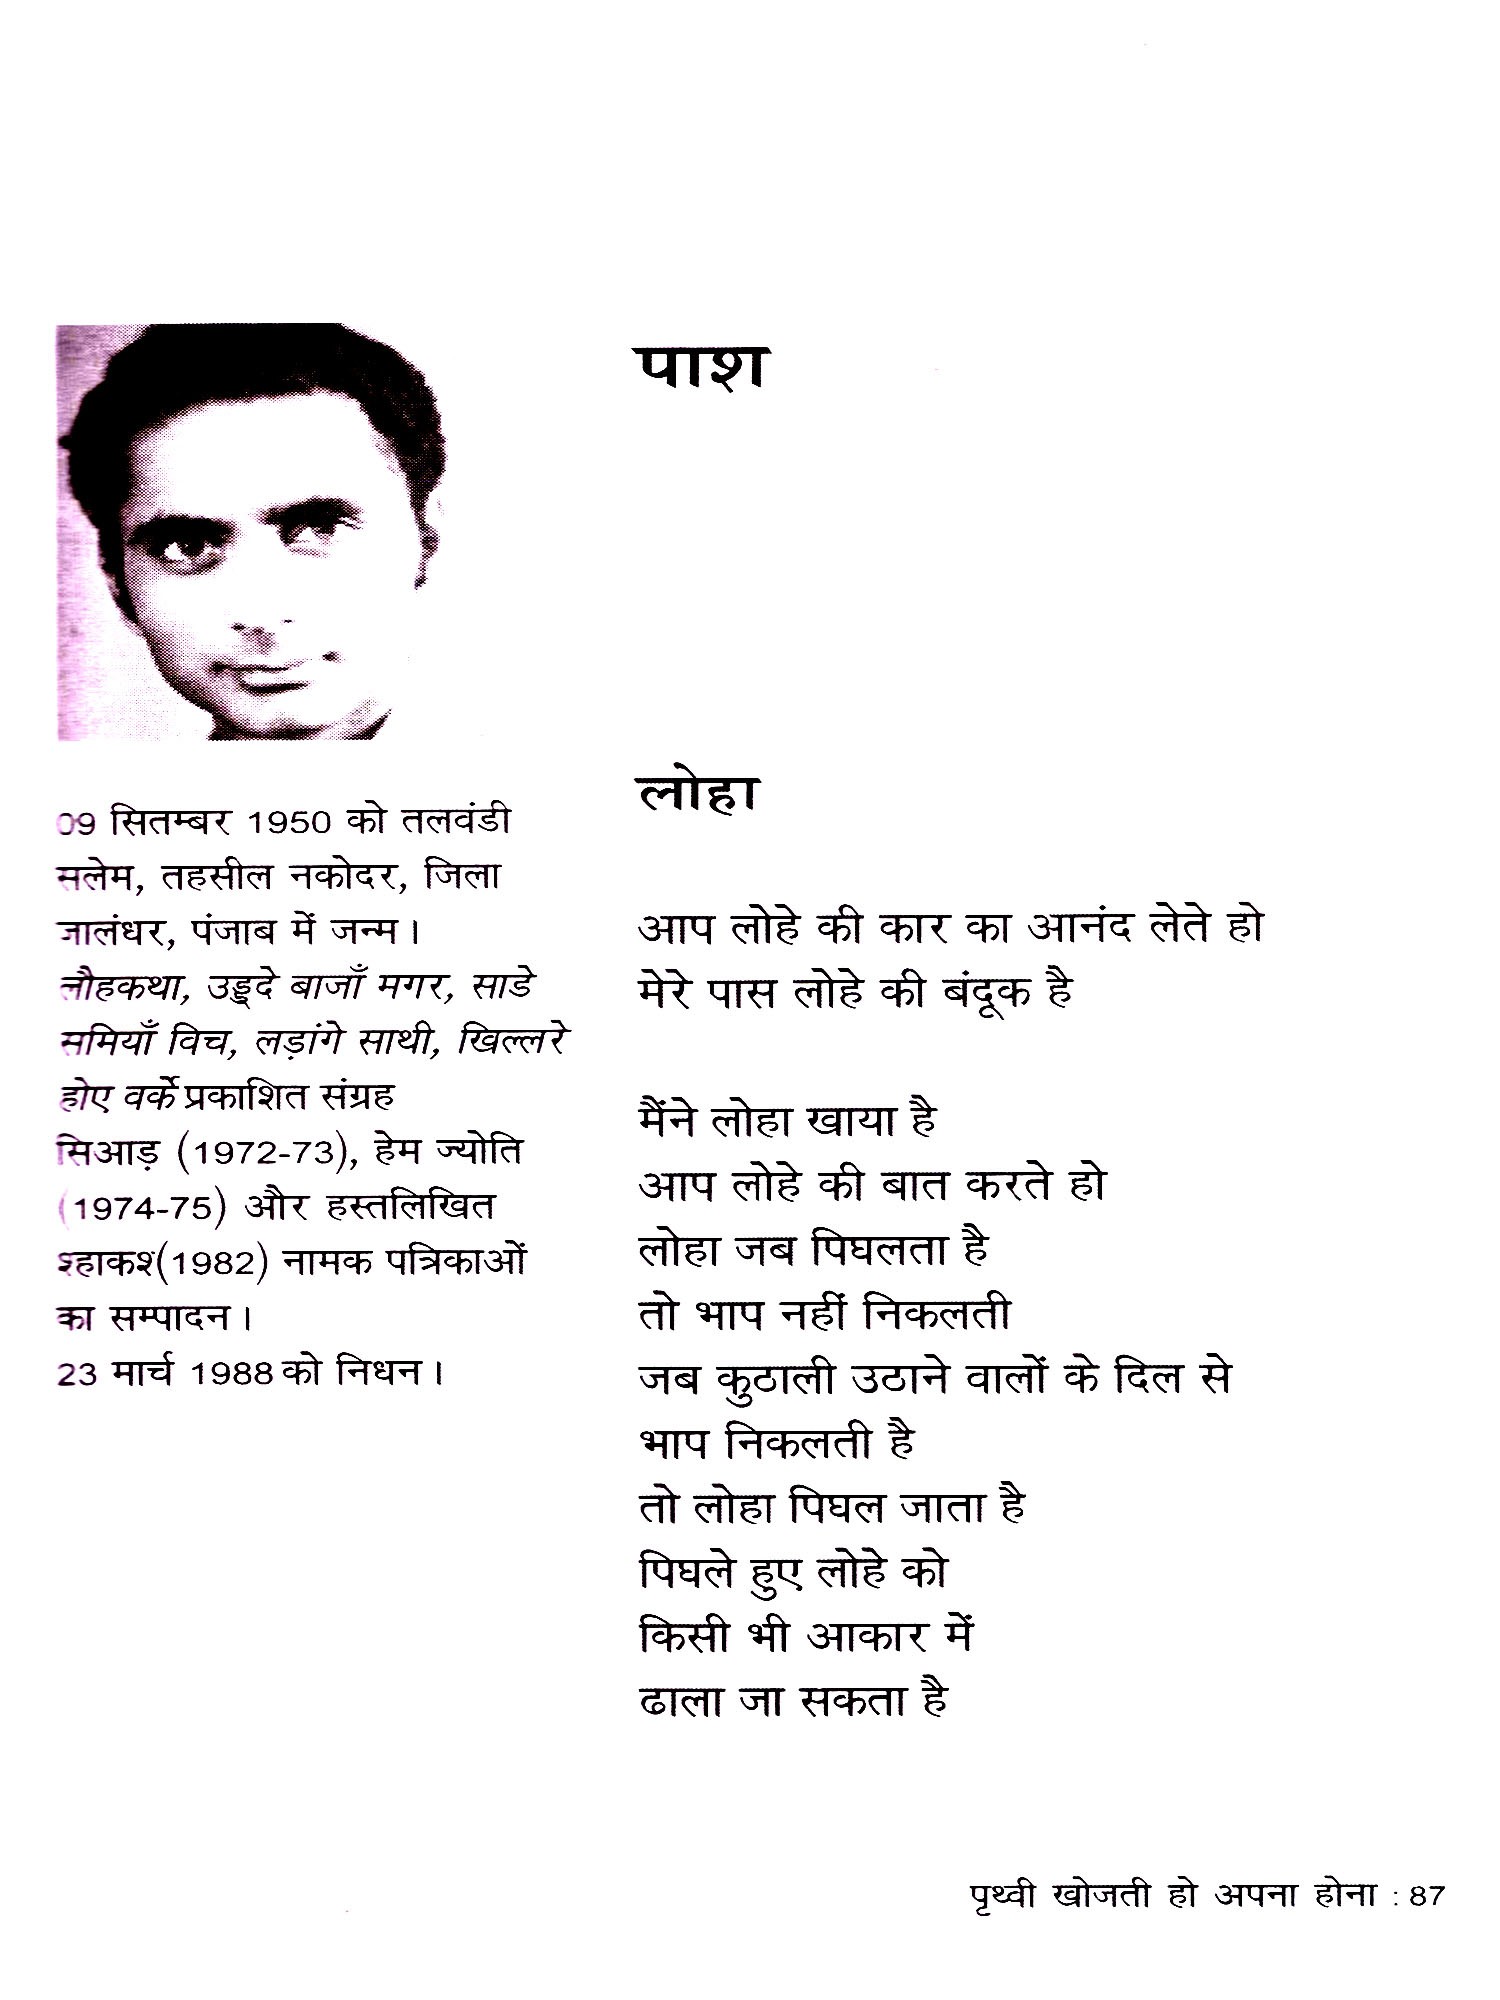 पाश
09 सितम्बर 1950 को तलवंडी
सलेम, तहसील नकोदर, जिला
जालंधर, पंजाब में जन्म।
लौहकथा, उड्ड्दे बाजाँ मगर, साडे
समियाँ विच, लड़ांगे साथी, खिल्लरे
होए वर्के प्रकाशित संग्रह
सिआड़ (1972-73), हेम ज्योति
(1974-75) और हस्तलिखित
श्हाकश्(1982) नामक पत्रिकाओं
का सम्पादन।
23 मार्च 1988 को निधन।
लोहा
आप लोहे की कार का आनंद लेते हो
मेरे पास लोहे की बंदूक है
मैंने लोहा खाया है
आप लोहे की बात करते हो
लोहा जब पिघलता है
तो भाप नहीं निकलती
जब कुठाली उठाने वालों के दिल से
भाप निकलती है
तो लोहा पिघल जाता है
पिघले हुए लोहे को
किसी भी आकार में
ढाला जा सकता है
पृथ्वी खोजती हो अपना होना : 87